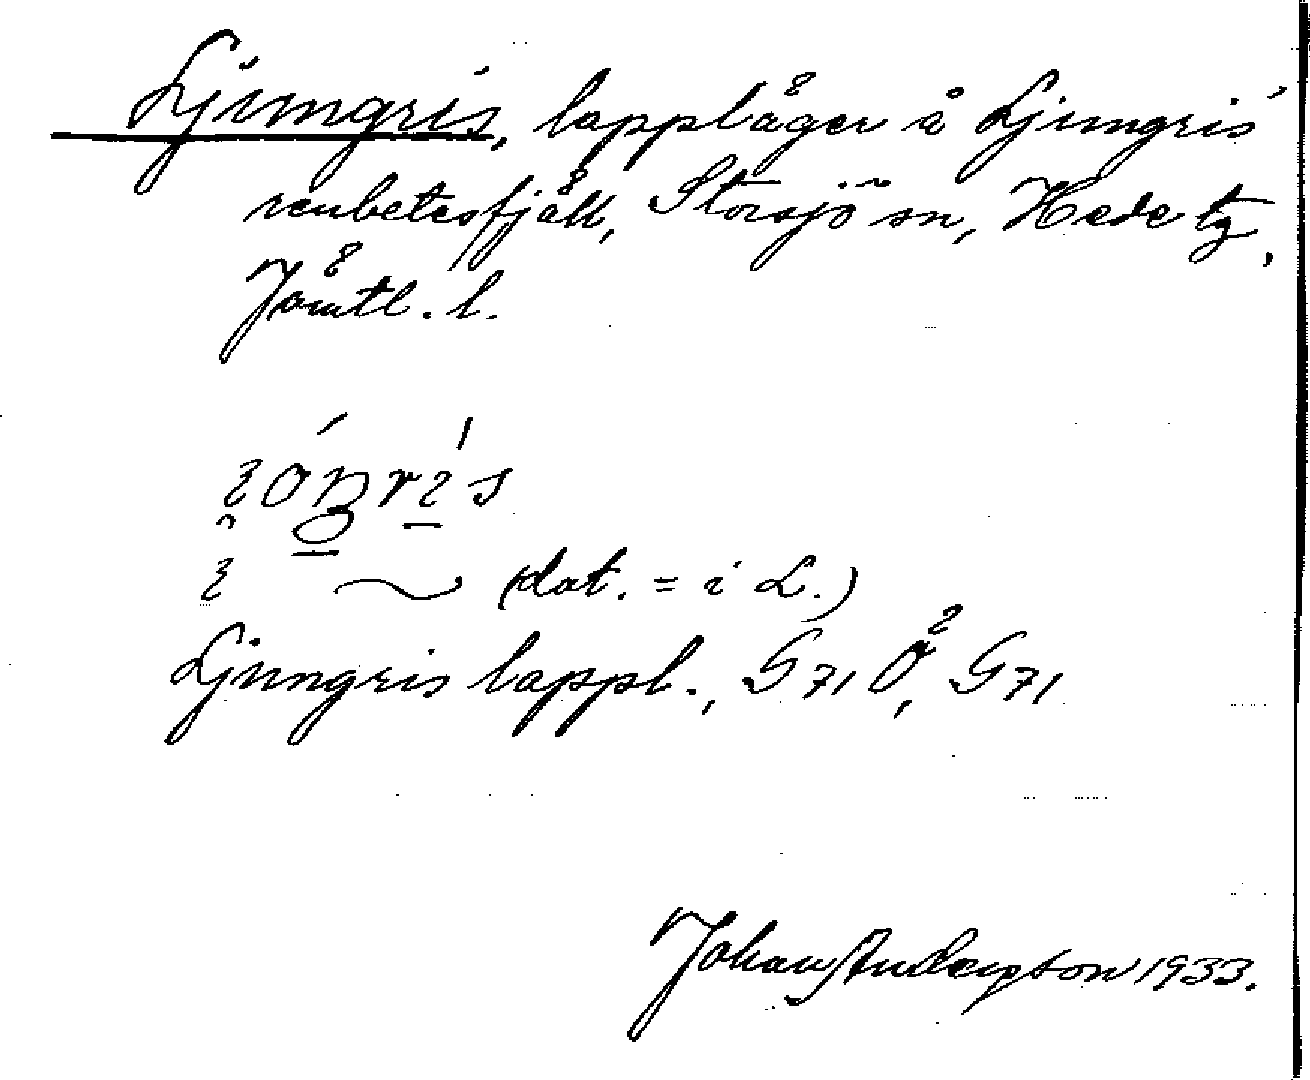 Ljungris, lappläger å Ljungris
renbetesfjäll, Storsjö sn, Hede tg,
Jämtl. l.
(dat. = i L.)
Ljungris lappl., G71 Ö², G71
Johan Anderson 1933.